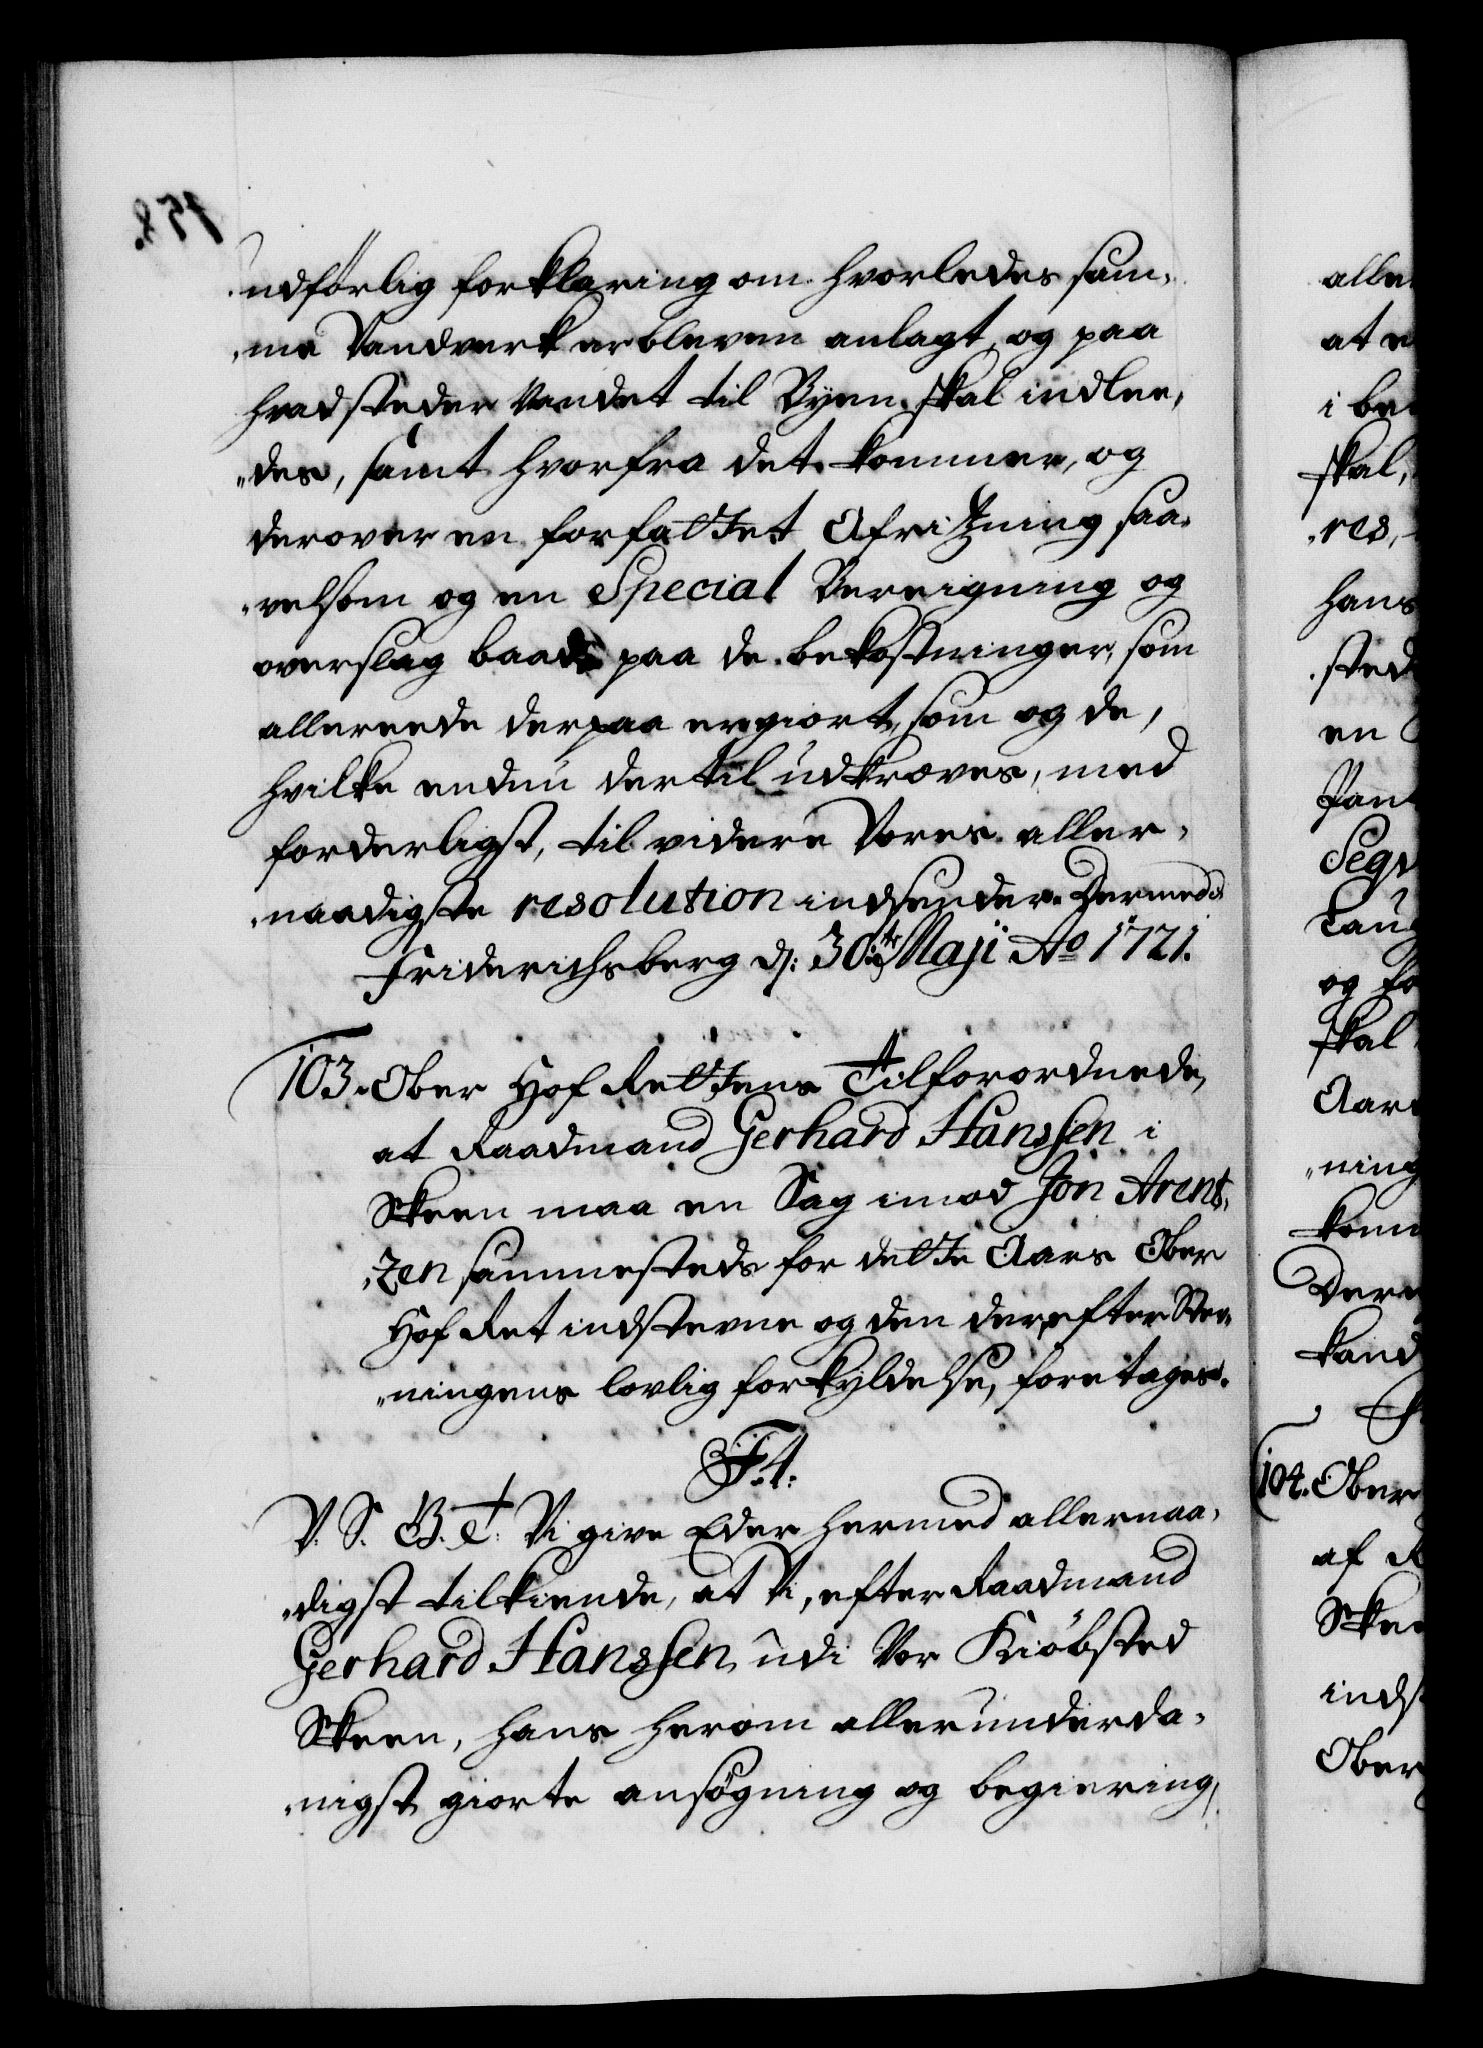 udförlig forklaring om hvorledes sam,
„me Vandverk er bleven anlagt, og paa
hvad steder Vandet til Byen skal indlee,
„des, samt hvorfra det kommer, og
derover en forfattet Afritzning saa,
„velsom og en Special Bereigning og
overslag baade paa de bekostninger, som
allereede derpaa er giort, som og de,
hvilke endnu dertil udkræves, med
forderligst, til videre Vores aller,
„naadigste resolution indsender. Dermed
Friderichsberg d: 30te Maji Ao 1721.
103. Ober Hof Rettens Tilforordnede,
at Raadmand Gerhard Hanssen i
Skeen maa en Sag imod Jon Arent,
„zen sammesteds for dette Aars Ober
Hof Ret indstevne og den derefter Stev,
„ningens lovlig forkyldelse, foretages.
F. 4.
V. S. G. T: Vi give Eder hermed allernaa,
„digst tilkiende, at Vi, efter Raadmand
Gerhard Hanssen, udi Vor Kiöbsted
Skeen, hans herom allerunderda,
„nigst giorte ansøgning og begiering,
alle
at
i be
skal,
„res,
hans
sted
en
Pant
Segv
Laug
og fo
skal
Aar
„ning
kom
Der
kand
104. Ober
af R
Skee
indst
Ober